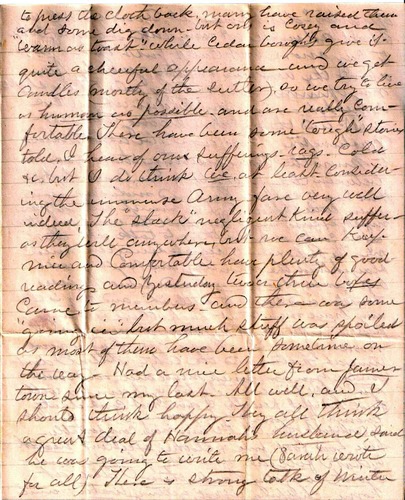 to press the cloth back, many have raised them
and some dig down - but ours is cosy and
"warm as toast" while Cedar boughs give it
quite a cheerful appearance - and we get
candles mostly of the Sutler, so we try to live
as human as possible. and are really Com-
fortable. There have been some "tough" stories
told, I hear of our sufferings. rags. Cold
&c. but I do think we at least. Consider-
ing the immense Army fare very well
indeed, The "slack" negligent kind suffer
as they will anywhere, but we can keep
nice and Comfortable have plenty of good
reading and yesterday three
Came to members - and there was some
in but much stuff was spoiled
as most of them have been sometime on
the way. Had a nice letter from James
town since my last. All well, and I
should think happy. They all think
a great deal of Hannah's husband said
he was going to write me (Sarah wrote
for all) There is strong talk of Winter